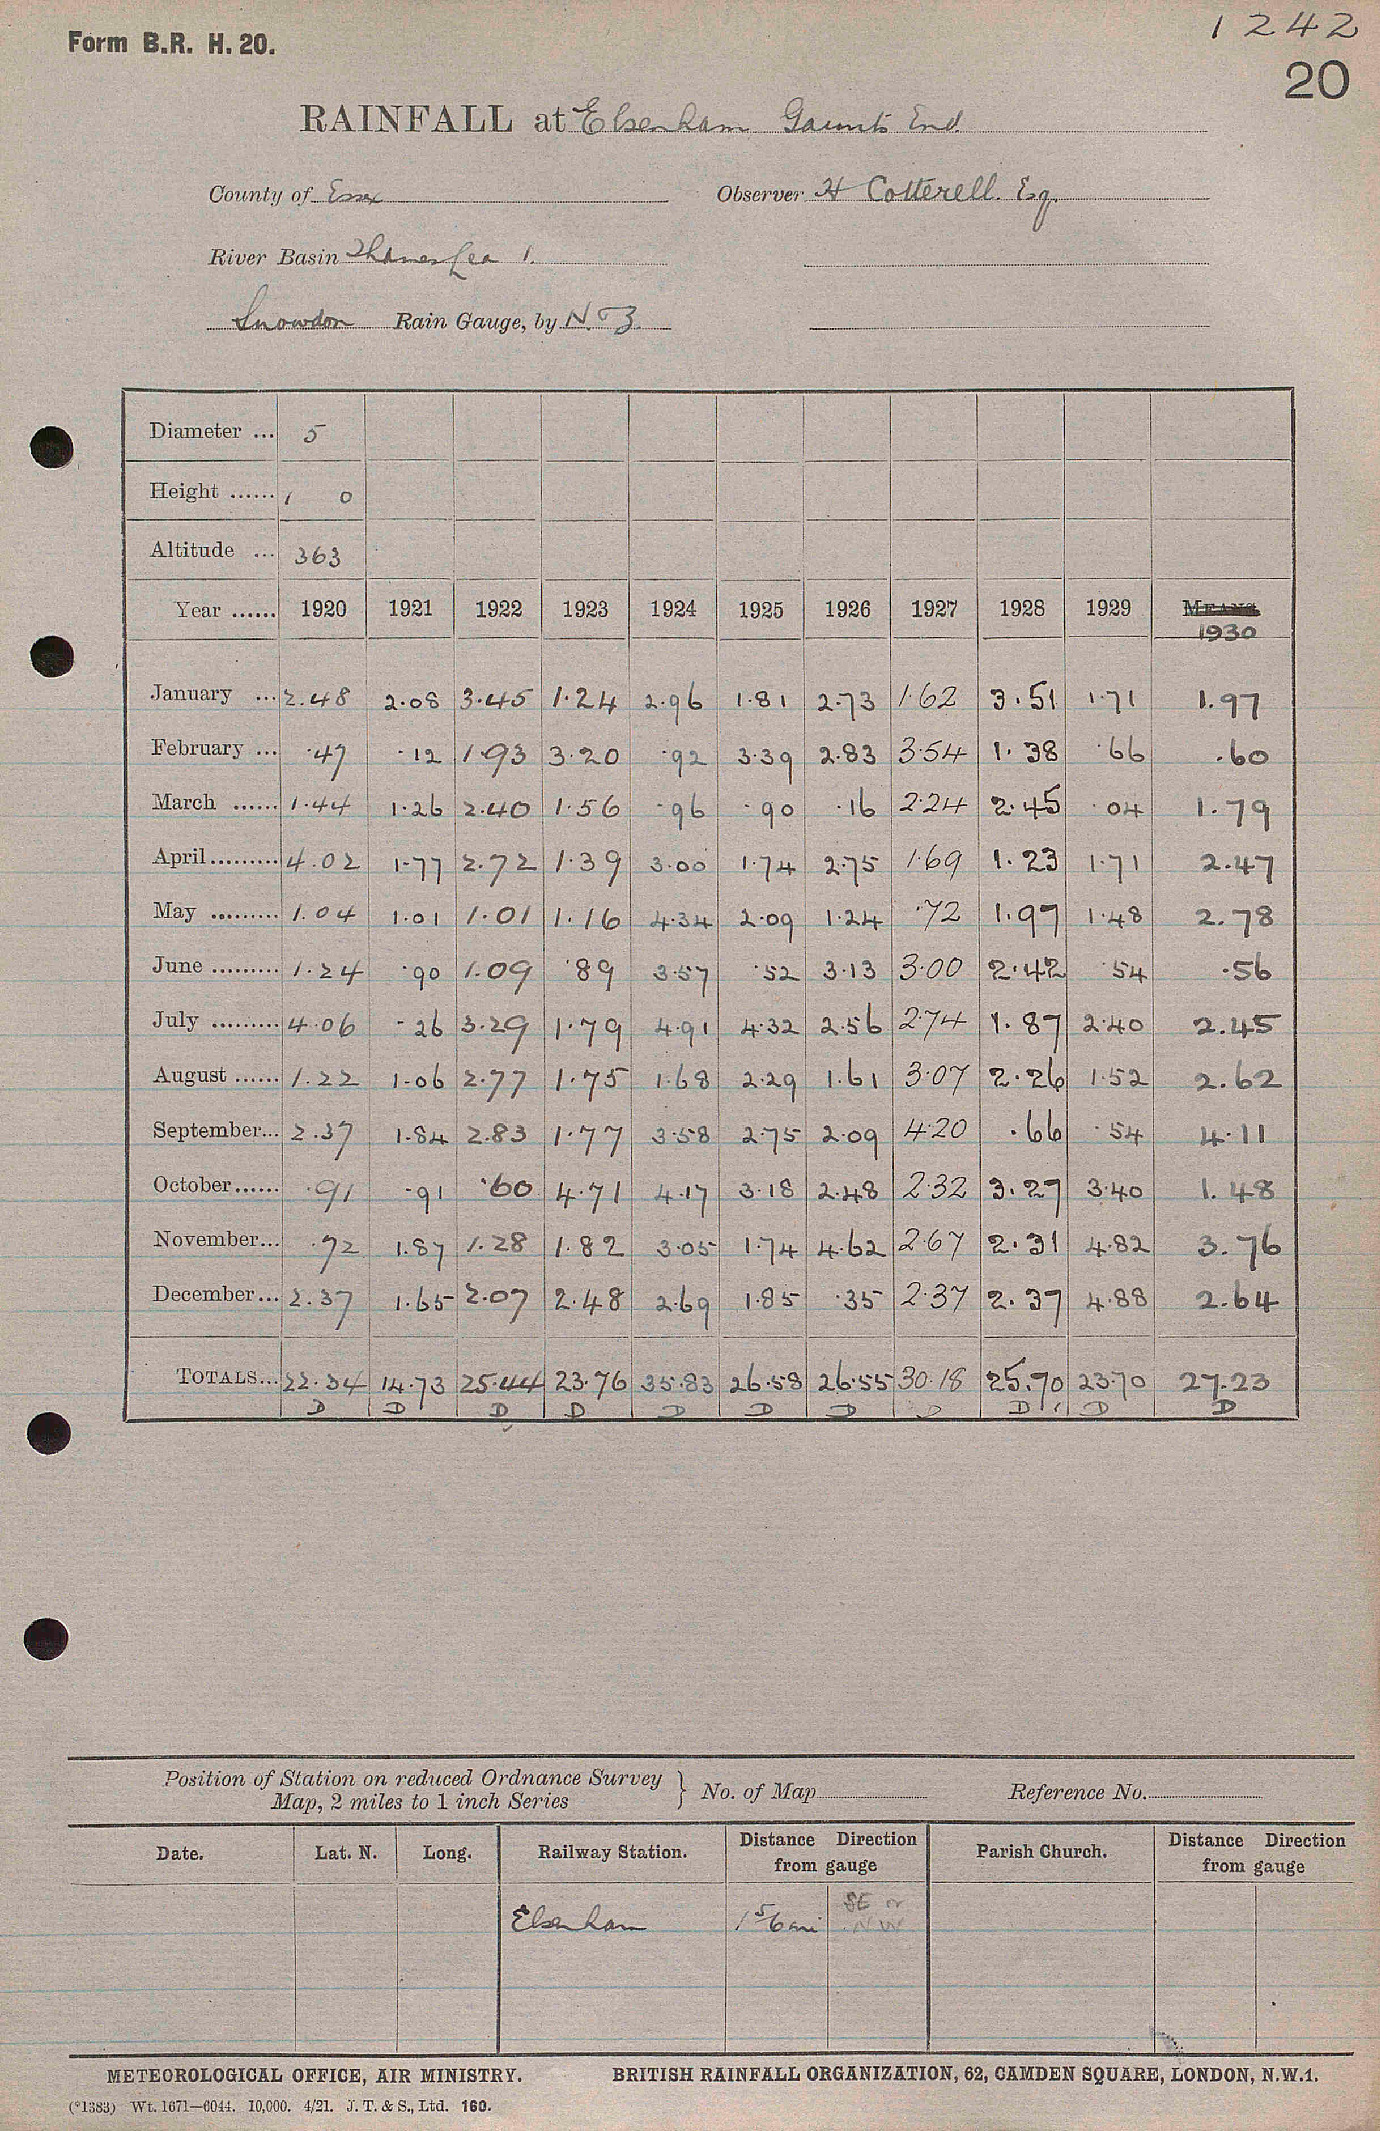 1242
Form B.R. H. 20.
20
RAINFALL at Elsenham Gaunts End
County of Essex Observer H Cotterell. Esq.
River Basin Thames Lea 1.
Snowdon Rain Gauge, by N & Z
Diameter ... 5
Height ...... 1 0
Altitude ... 363
Year ...... 1920 1921 1922 1923 1924 1925 1926 1927 1928 1929 MEANS
1930
January ... 2.48 2.08 3.45 1.24 2.96 1.81 2.73 1.62 3.51 1.71 1.97
February ... .47 .12 1.93 3.20 .92 3.39 2.83 3.54 1.38 .66 .60
March ...... 1.44 1.26 2.40 1.56 .96 .90 .16 2.24 2.45 .04 1.79
April ......... 4.02 1.77 2.72 1.39 3.00 1.74 2.75 1.69 1.23 1.71 2.47
May ......... 1.04 1.01 1.01 1.16 4.34 2.09 1.24 .72 1.97 1.48 2.78
June ......... 1.24 .90 1.09 .89 3.57 .52 3.13 3.00 2.42 .54 .56
July ......... 4.06 .26 3.29 1.79 4.91 4.32 2.56 2.74 1.87 2.40 2.45
August ...... 1.22 1.06 2.77 1.75 1.68 2.29 1.61 3.07 2.26 1.52 2.62
September... 2.37 1.84 2.83 1.77 3.58 2.75 2.09 4.20 .66 .54 4.11
October...... .91 .91 .60 4.71 4.17 3.18 2.48 2.32 3.27 3.40 1.48
November... .72 1.87 1.28 1.82 3.05 1.74 4.62 2.67 2.31 4.82 3.76
December... 2.37 1.65 2.07 2.48 2.69 1.85 .35 2.37 2.37 4.88 2.64
TOTALS... 22.34 14.73 25.44 23.76 35.83 26.58 26.55 30.18 25.70 23.70 27.23
D D D D D D D D D D D
Position of Station on reduced Ordnance Survey Map, 2 miles to 1 inch Series } No. of Map Reference No.
Date. Lat. N. Long. Railway Station. Distance Direction from gauge Parish Church. Distance Direction from gauge
Elsenham 1 5/6 mi SE or NW
METEOROLOGICAL OFFICE, AIR MINISTRY. BRITISH RAINFALL ORGANIZATION, 62, CAMDEN SQUARE, LONDON, N.W.1.
(*1383) Wt. 1671—6044. 10,000. 4/21. J. T. & S., Ltd. 160.